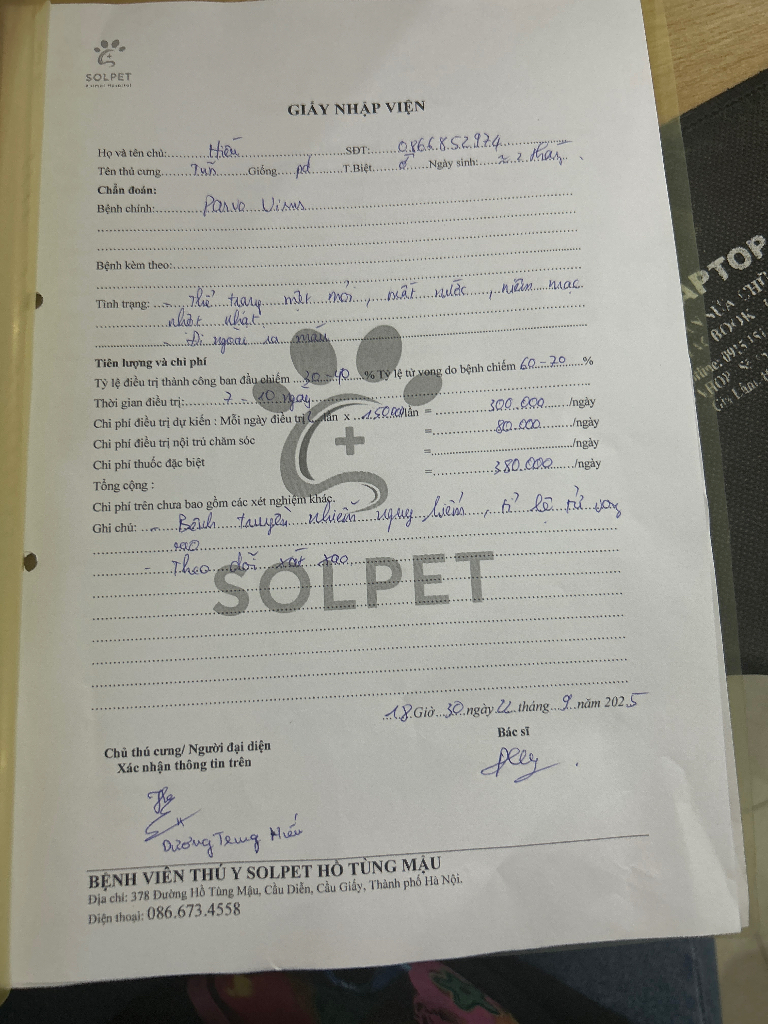 SOLPET
Animal Hospital
GIẤY NHẬP VIỆN
Họ và tên chủ: Hiếu SĐT: 0866.852.974
Tên thú cưng Giống pd T.Biệt ♂ Ngày sinh: ≈ 2 tháng
Chẩn đoán:
Bệnh chính: Parvo Virus
Bệnh kèm theo:
Tình trạng: - Thể trạng mệt mỏi, mất nước, niêm mạc
nhợt nhạt
- Đi ngoài ra máu
Tiên lượng và chi phí
Tỷ lệ điều trị thành công ban đầu chiếm 30-40 % Tỷ lệ tử vong do bệnh chiếm 60-70 %
Thời gian điều trị: 7 - 10 ngày
Chi phí điều trị dự kiến : Mỗi ngày điều trị lần x 150.000/lần = 300.000 /ngày
Chi phí điều trị nội trú chăm sóc = 80.000 /ngày
Chi phí thuốc đặc biệt = /ngày
Tổng cộng : = 380.000 /ngày
Chi phí trên chưa bao gồm các xét nghiệm khác.
Ghi chú: - Bệnh truyền nhiễm nguy hiểm, tỉ lệ tử vong
cao
- Theo dõi sát sao
SOLPET
18 Giờ 30 ngày 22 tháng 9 năm 2025
Chủ thú cưng/ Người đại diện
Xác nhận thông tin trên
Bác sĩ
Dương Trung Hiếu
BỆNH VIỆN THÚ Y SOLPET HỒ TÙNG MẬU
Địa chỉ: 378 Đường Hồ Tùng Mậu, Cầu Diễn, Cầu Giấy, Thành phố Hà Nội.
Điện thoại: 086.673.4558